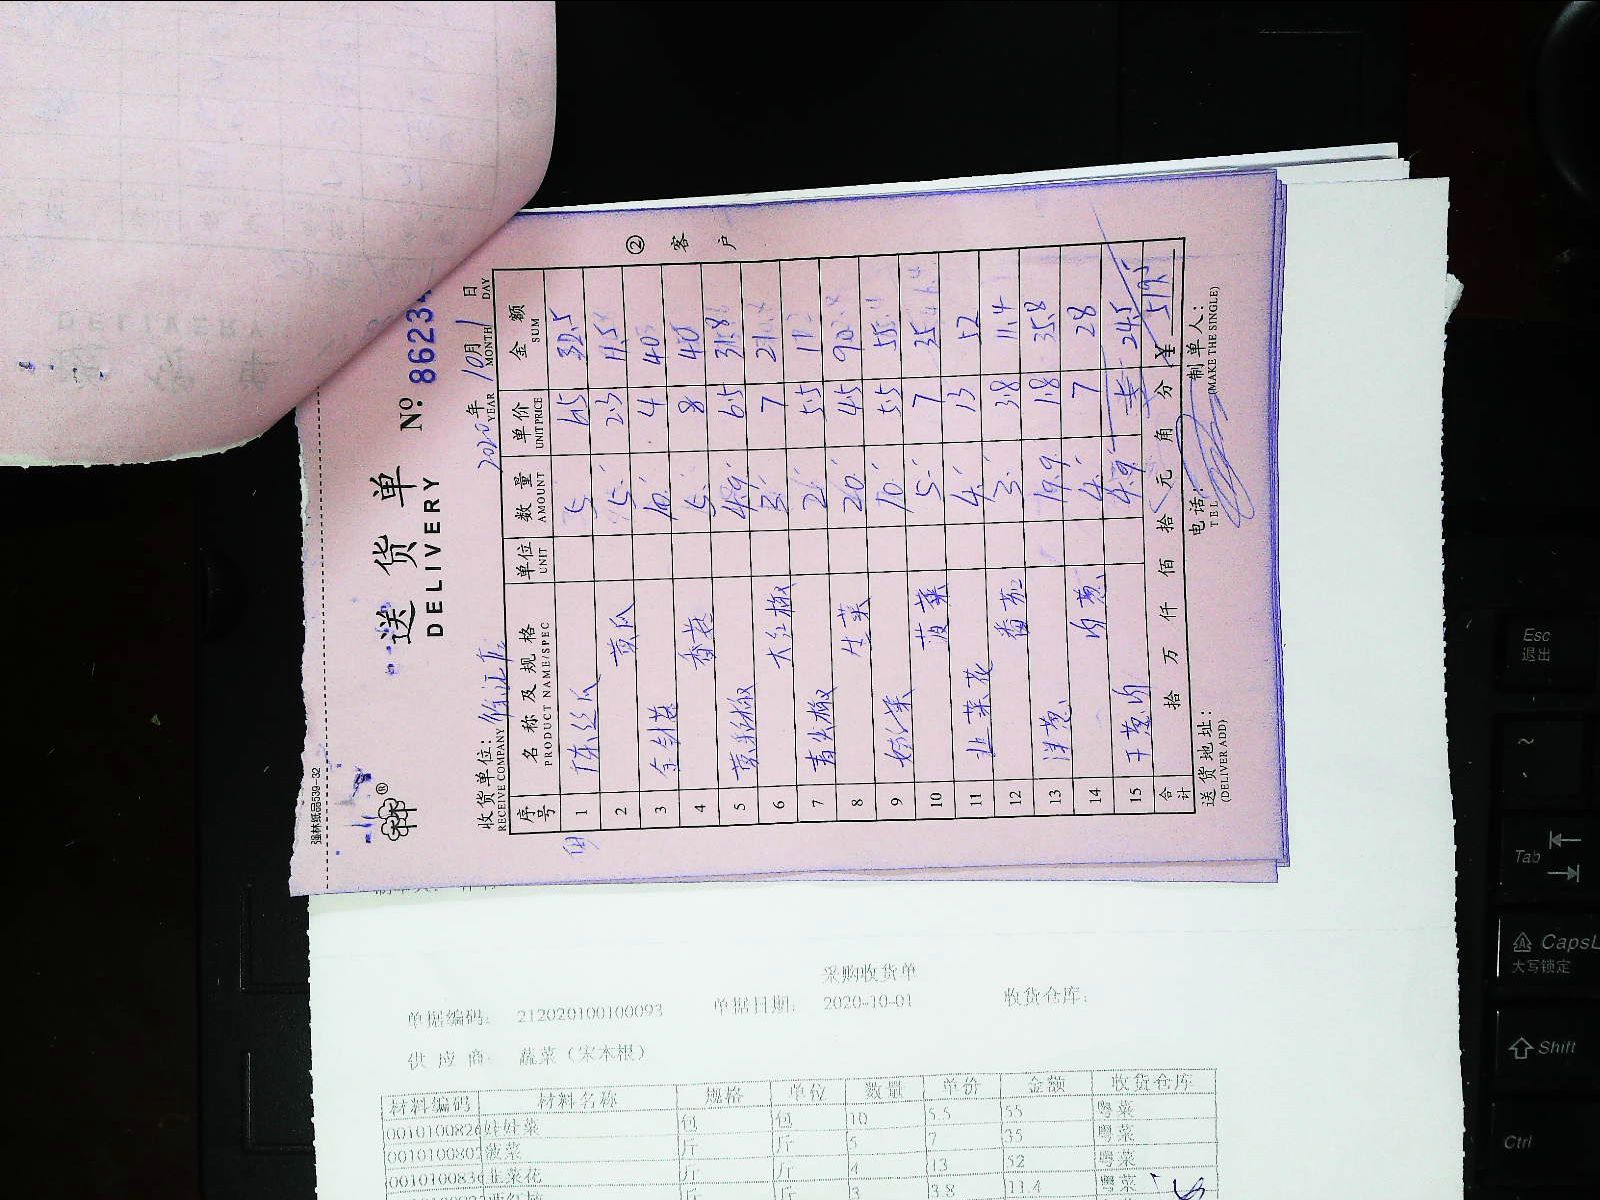 强林纸品539-32
送货单
DELIVERY
No. 86234
收货单位:
RECEIVE COMPANY
2020年 10月 1日
YEAR MONTH DAY
② 客户
序号 名称及规格 单位 数量 单价 金额
PRODUCT NAME/SPEC UNIT AMOUNT UNIT PRICE SUM
1 丝瓜 5 6.5 32.5
2 黄瓜 5 2.3 11.5
3 10 4 40
4 香菇 5 8 40
5 4.9 6.5 31.8
6 大红椒 3 7 21
7 青尖椒 2 5.5 11
8 生菜 20 4.5 90
9 娃娃菜 10 5.5 55
10 菠菜 5 7 35
11 韭菜花 4 13 52
12 番茄 3 3.8 11.4
13 洋葱 19.9 1.8 35.8
14 肉葱 4 7 28
15 干葱 4.9 5 24.5
合计 拾 万 仟 佰 拾 元 角 分 ¥ 519.5
送货地址:
(DELIVER ADD)
电话:
TEL
制单人:
(MAKE THE SINGLE)
采购收货单
单据编码: 212020100100093 单据日期: 2020-10-01 收货仓库:
供应商: 蔬菜(宋本根)
材料编码 材料名称 规格 单位 数量 单价 金额 收货仓库
0010100826 娃娃菜 包 包 10 5.5 55 粤菜
0010100802 菠菜 斤 斤 5 7 35 粤菜
0010100836 韭菜花 斤 斤 4 13 52 粤菜
斤 斤 3 3.8 11.4 粤菜
Esc
退出
~
Tab
CapsL
大写锁定
Shift
Ctrl